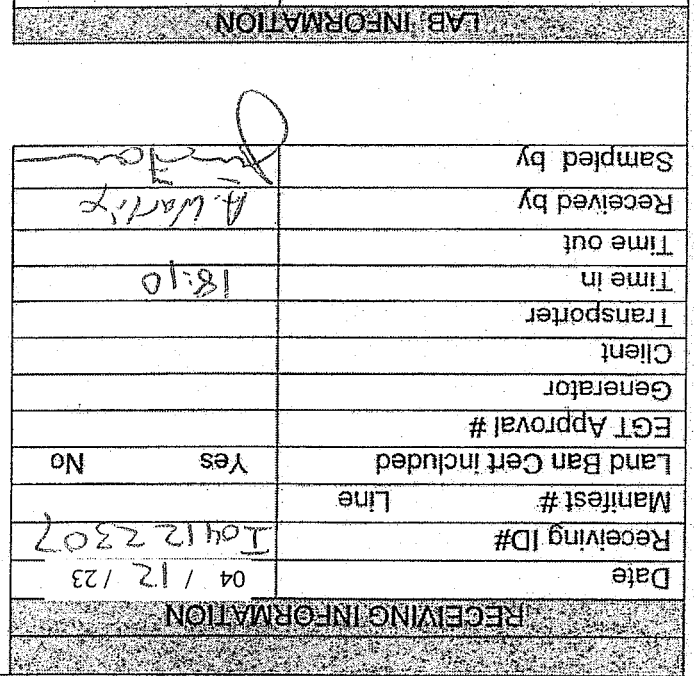 RECEIVING INFORMATION
Date 04 / 12 / 23
Receiving ID# I04122307
Manifest # Line
Land Ban Cert included Yes No
EGT Approval #
Generator
Client
Transporter
Time in 18:10
Time out
Received by
Sampled by
LAB. INFORMATION